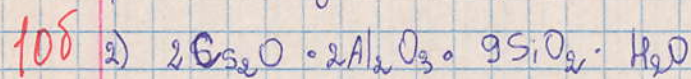 10б 2) 2Cs₂O · 2Al₂O₃ · 9SiO₂ · H₂O